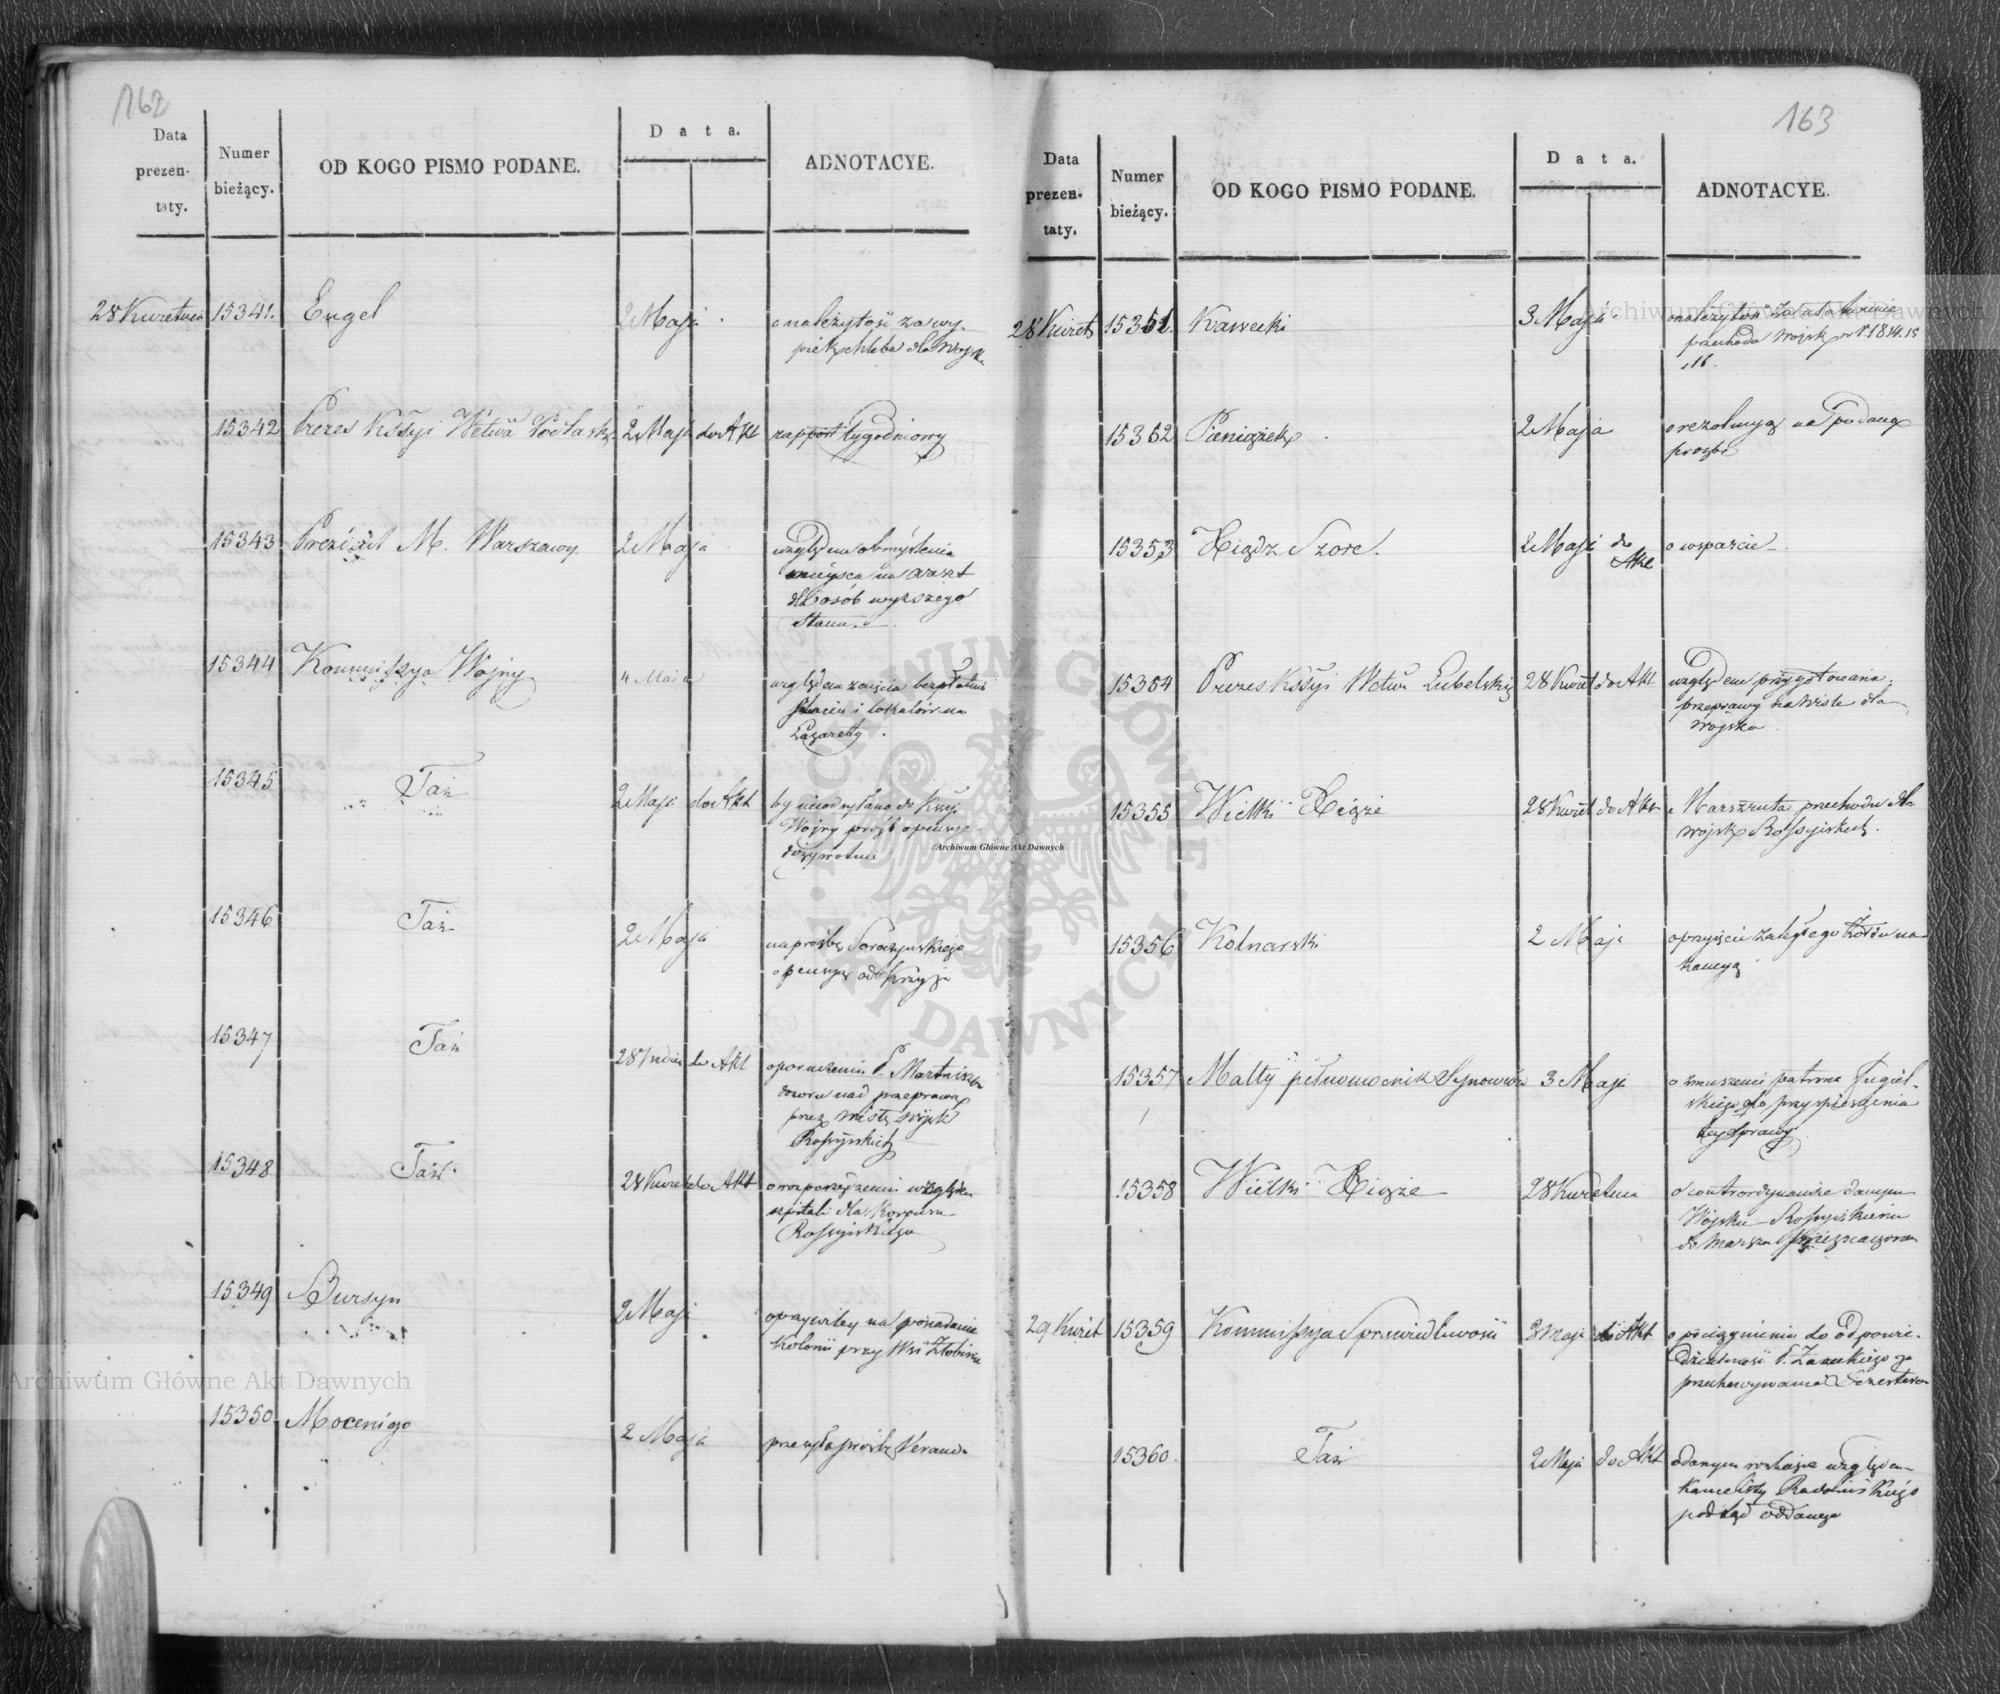 162
Data
prezen-
taty.
Numer
bieżący.
OD KOGO PISMO PODANE.
Data.
ADNOTACYE.
28 Kwietnia 15341. Engel 2 Maja o należytość za wy-
piek chleba dla Wojska
15342 Prezes Kssyi Wdwa Podlask. 2 Maja do Akt rapport tygodniowy
15343 Prezidt M. Warszawy. 2 Maja względem obmyślenia
mieysca na areszt
dla osób wyższego
Stanu.
15344 Kommissya Wojny 4 Maja względem zajęcia bezpłatnie
i lokalów na
Lazarety.
15345 Taż 2 Maja do Akt by nie odsyłano do Kssyi
Wojny próśb o pensye
dożywotnie
15346 Taż 2 Maja na prośbę
o pensyę od Krzyża
15347 Taż 28 Kwie do Akt o poruczeniu P.
dozoru nad przeprawą
przez Wisłę wojsk
Rossyiskich
15348 Taż 28 Kwiet do Akt o rozporządzeniu względem
szpitali dla Korpusu
Rossyiskiego
15349 Bursyn 2 Maja o przywiley na posiadanie
kolonii przy Wsi
15350 Mocenigo 2 Maja przesyła prośbę
163
Data
prezen-
taty.
Numer
bieżący.
OD KOGO PISMO PODANE.
Data.
ADNOTACYE.
28 Kwiet 15351. Kawecki 3 Maja o należytość za
przechodu Wojsk w r. 1814. 15
i 16.
15352 Pieniążek 2 Maja o rezolucyą na podaną
prośbę
15353 Xiądz Szorc. 2 Maja do
Akt
o wsparcie
15354 Prezes Kssyi Wdwa Lubelskie 28 Kwiet do Akt względem przygotowania
przeprawy na Wiśle dla
Wojska
15355 Wielki Xiąże 28 Kwiet do Akt Marszruta przechodu dla
wojsk Rossyiskich.
15356 Kolnarski 2 Maja o przyjęcie zaległego Żołdu na
kaucyą
15357 Malty pełnomocnik Synowców 3 Maja o zmuszenie patrona
do przyspieszenia
tey sprawy
15358 Wielki Xiąże 28 Kwietnia o contrordynansie danym
Wojsku Rossyiskiemu
do marszu
29 Kwiet 15359 Kommissya Sprawiedliwości 2 Maja do Akt o pociągnieniu do odpowie-
dzialności P. za
przechowywanie Dezertera
15360. Taż 2 Maja do Akt o danym rozkazie względem
Kancelisty Radolińskiego
pod sąd oddanego
Archiwum Główne Akt Dawnych
Archiwum Główne Akt Dawnych
Archiwum Główne Akt Dawnych
ARCHIWUM GŁÓWNE AKT DAWNYCH